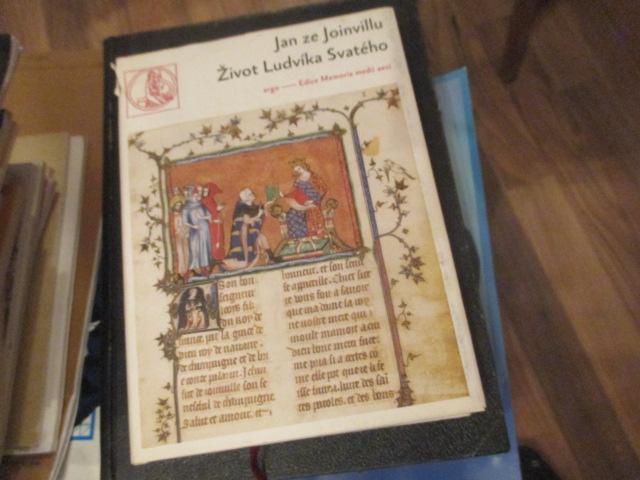 Jan ze Joinvillu
Život Ludvíka Svatého
argo — Edice Memoria medii aevi
bon
seigneur
filz
roy de
france, par la grace de
dieu roy de navarre,
de champaigne et de brie
conte palatin, Jehan
sire de joinville son se
neschal de champaigne
Salut et amour, et
honneur, et son servise
Chier sire
je vous foiz a savoir
que ma dame la royne
vostre mere qui
moult mamoit a cui
dieu bone merci face
me pria si a certes co
me elle pot que je li fe
isse faire .i. livre des sai
tes paroles, et des bons